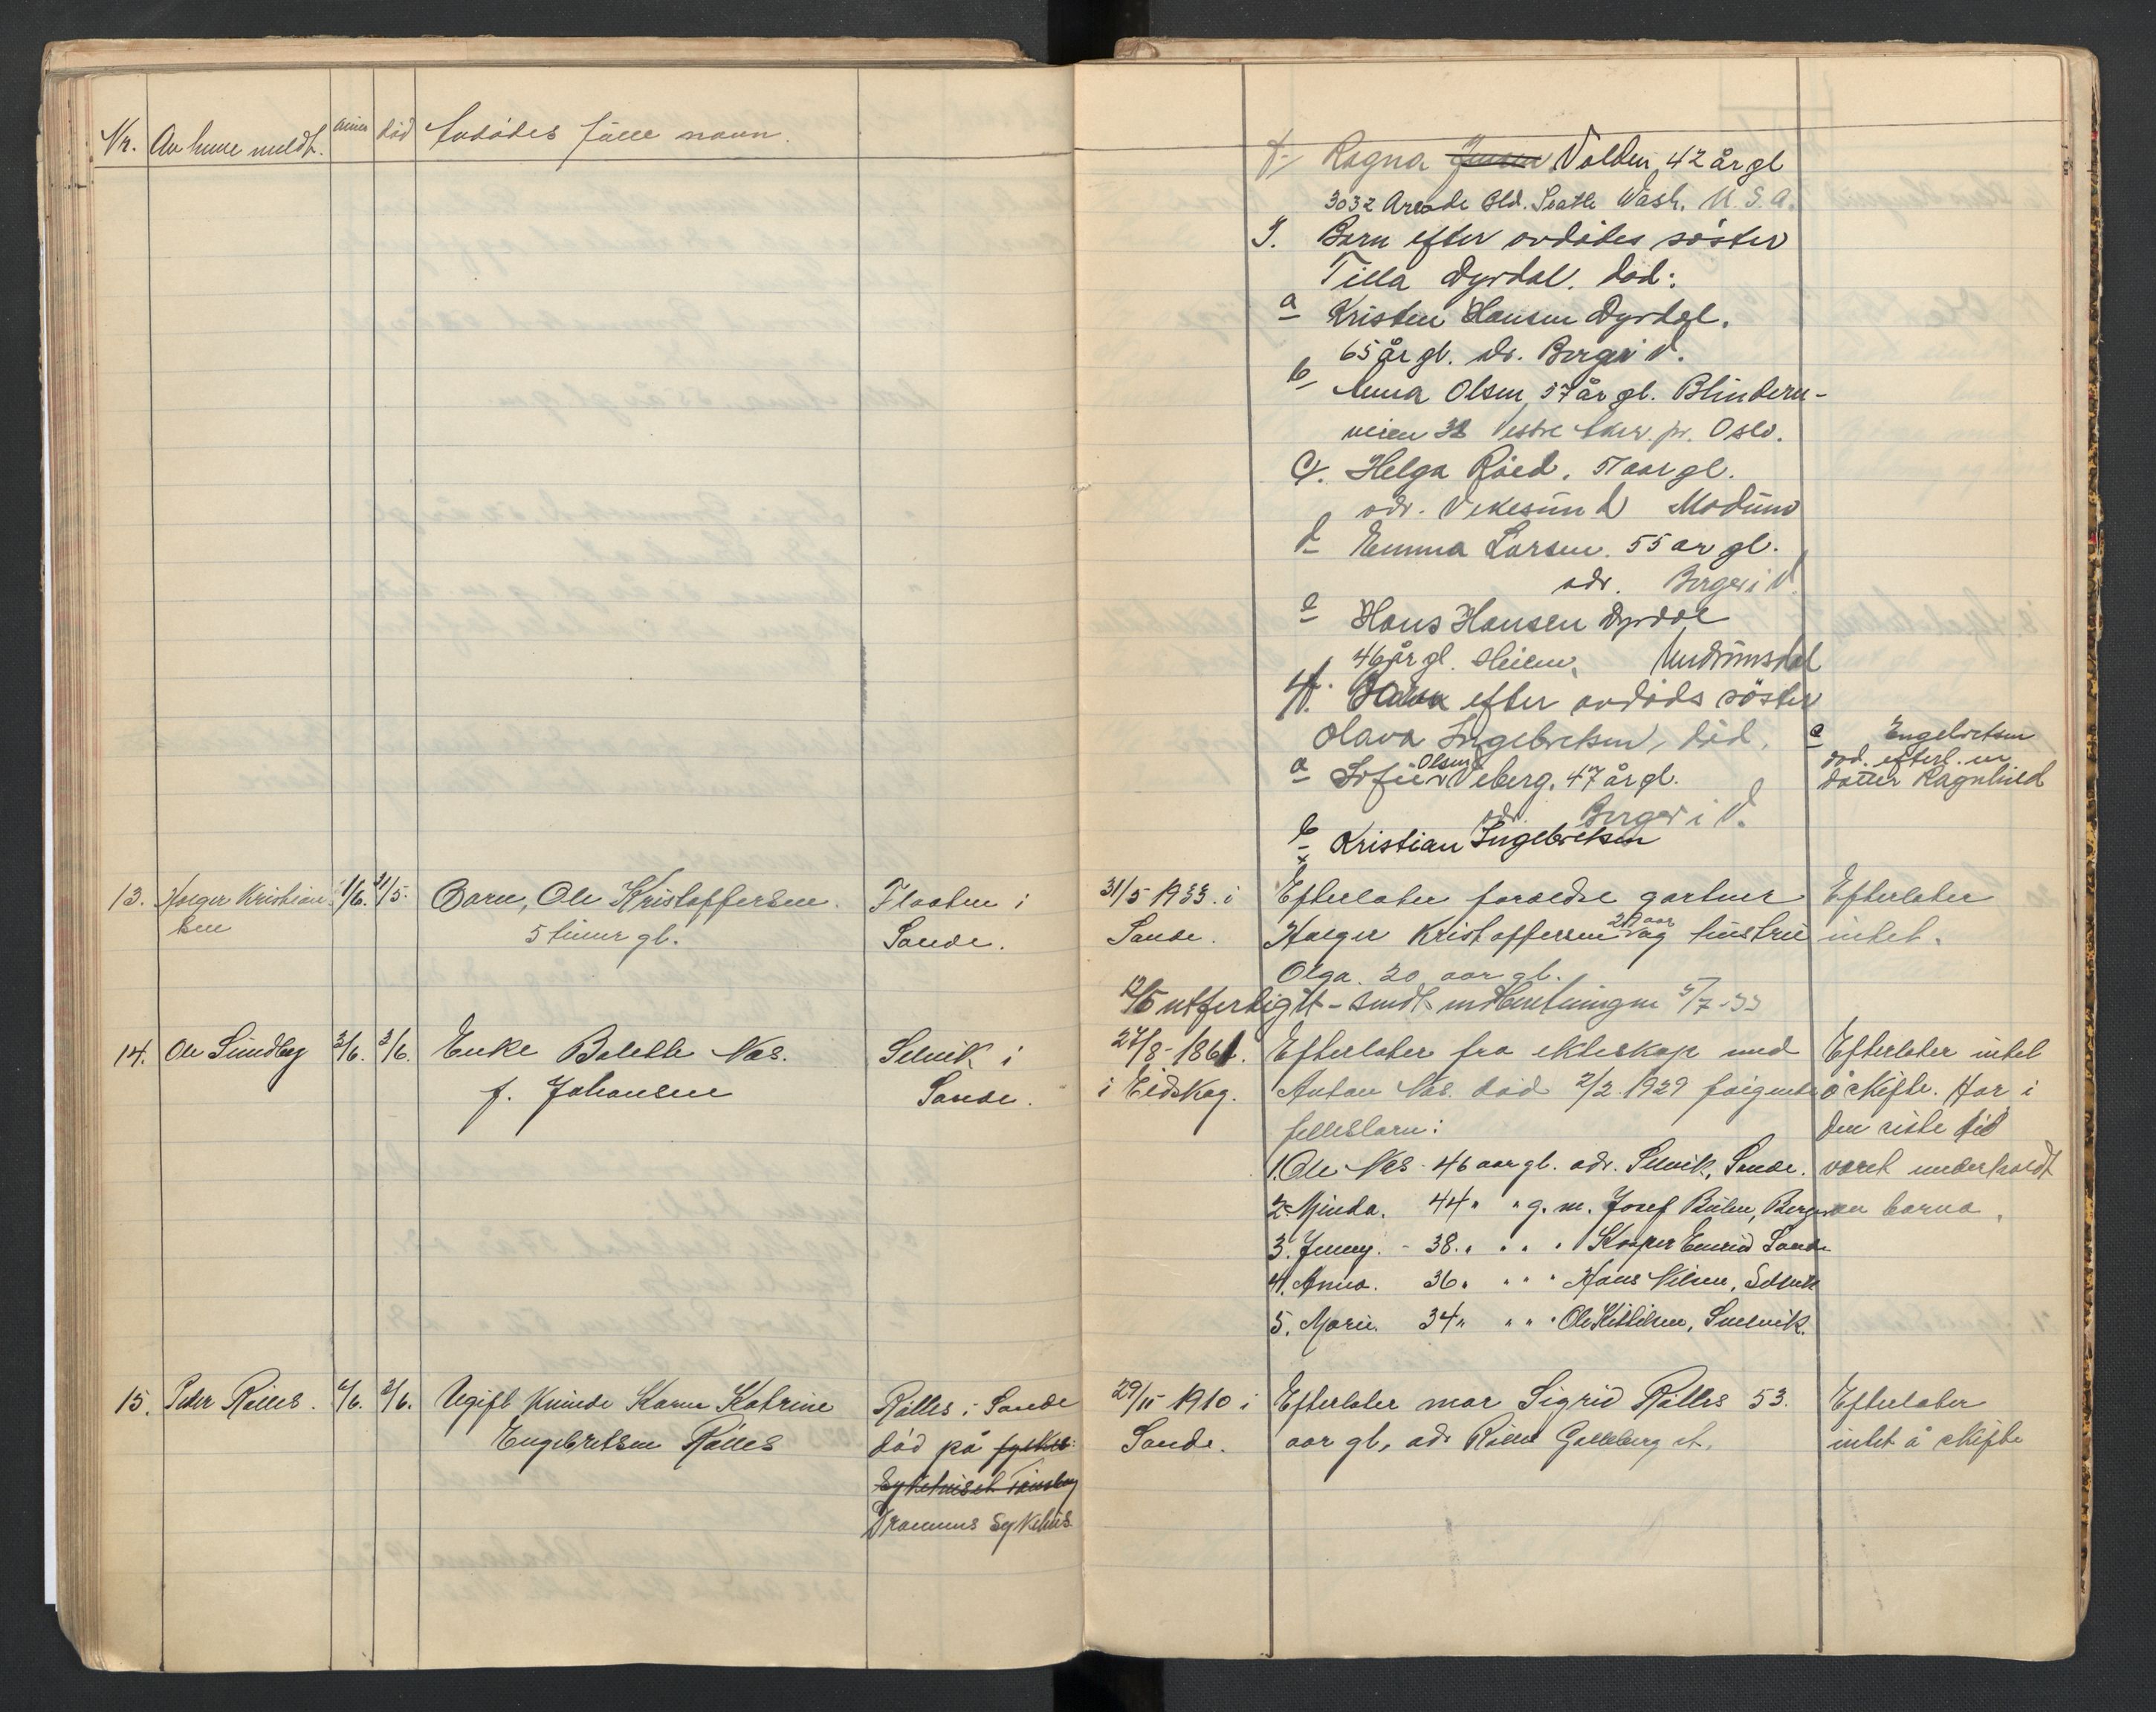 Nr. Av hvem meldt. død Avdødes fulle navn.
f/ Ragna Jensen Volden, 42 år gl
3032 Arcade Bld. Seatle Wash. U.S.A.
3. Barn efter avdødes søster
Tilla Dyrdal. død:
a Kristen Hansen Dyrdal.
65 år gl. adr. Berger i V.
b Anna Olsen, 57 år gl. Blindern-
veien 38 Vestre Aker. pr. Oslo.
c/. Helga Røed. 57 aar gl.
adr. Vikesund Modum
d Emma Larsen. 55 ar gl.
adr. Berger i V.
e Hans Hansen Dyrdal
46 år gl. Undrumsdal
4. Barn efter avdøds søster
Olava Ingebretsen, død.
a Sofie Olsen Veberg, 47 år gl.
adr. Berger i V.
b Kristian Ingebretsen
c Engebretsen
død. efterl. en
datter Ragnhild
13. Holger Kristian
sen
1/6. 31/5. Barn, Ole Kristoffersen.
5 timer gl.
Flaaten i
Sande.
31/5 1933. i
Sande.
Efterlater foreldre gartner
Holger Kristoffersen 29 aar og hustru
Olga. 20 aar gl.
Efterlater
intet.
12/6 utferdiget - sendt 5/7-33
14. Ole Sundby 3/6. 3/6. Enke Bolette Næs.
f. Johansen
Selvik i
Sande.
27/8-1861.
i Eidskog.
Efterlater fra ekteskap med
Anton Næs. død 2/2 1929 følgende
fellesbarn:
1. Ole Næs - 46 aar gl. adr. Selvik, Sande.
2. Minda. 44 " " g. m. Josef Bülen, Berger
3. Jenny. - 38. " " " " Kasper Sande
4. Anna. 36. " " " Hans Nilsen, Selvik
5. Marie. 34 " " " " Ole Kittilsen, Snesvik.
Efterlater intet
å skifte. Har i
den siste tid
været underholdt
av barna.
15. Peder Rølles. 6/6. 2/6. Ugift kvinde Karen Katrine
Engebretsen Rølles
Rølles i Sande
død på fylkes
Sykehuset Tønsberg
Drammens Sykehus.
29/11-1910 i
Sande.
Efterlater mor Sigrid Rølles 53.
aar gl, adr Rølles Galleberg st.
Efterlater
intet å skifte